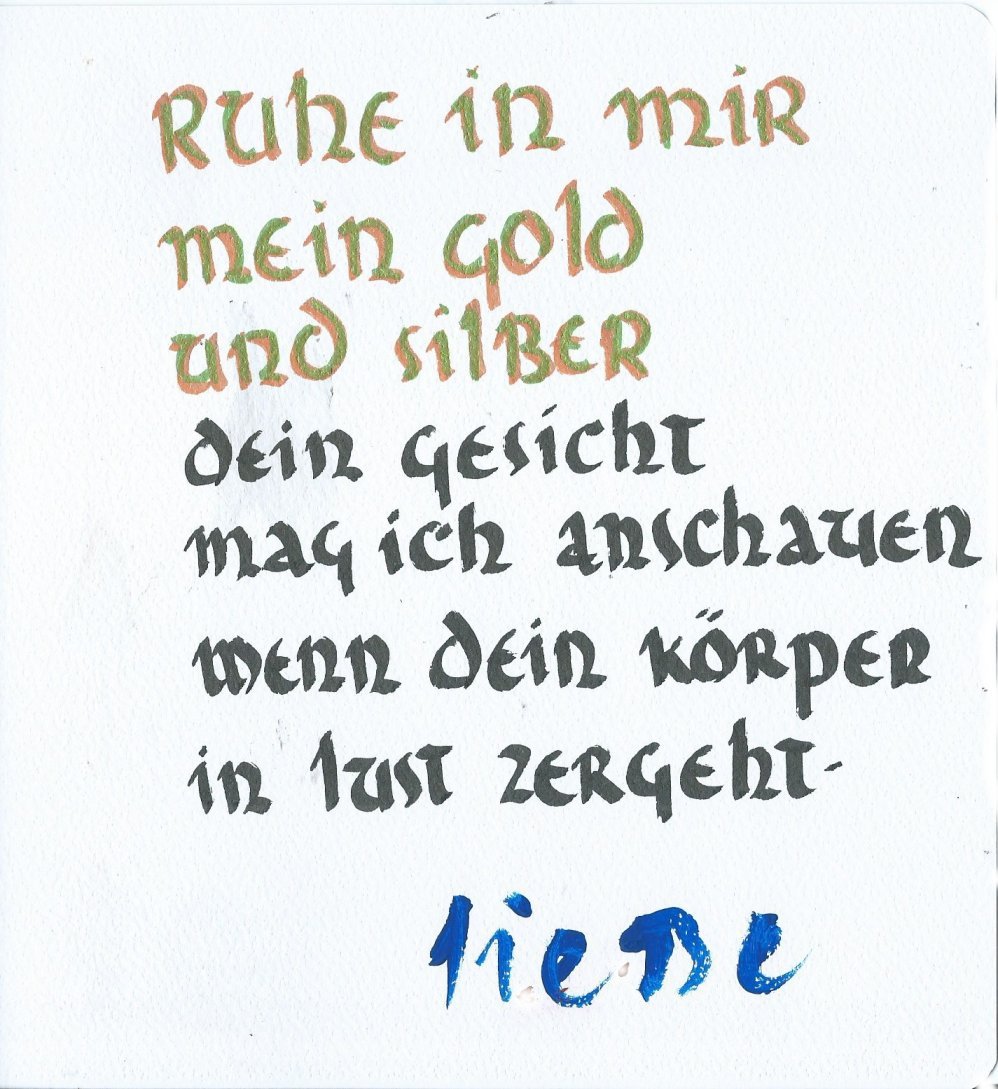 Ruhe in mir
mein gold
und silber
dein gesicht
mag ich anschauen
wenn dein körper
in lust zergeht.
liebe